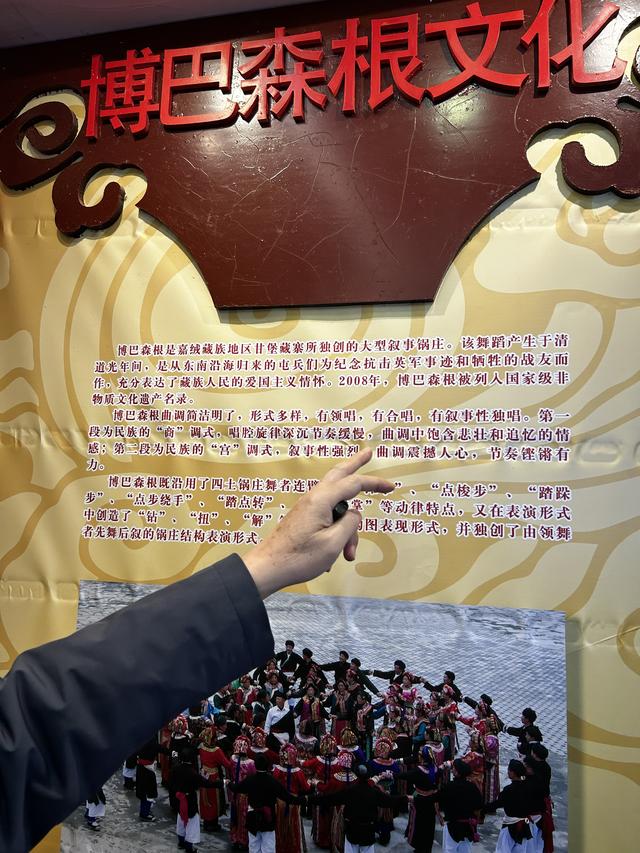 博巴森根文化
博巴森根是嘉绒藏族地区甘堡藏寨所独创的大型叙事锅庄。该舞蹈产生于清
道光年间，是从东南沿海归来的屯兵们为纪念抗击英军事迹和牺牲的战友而
作，充分表达了藏族人民的爱国主义情怀。2008年，博巴森根被列入国家级非
物质文化遗产名录。
博巴森根曲调简洁明了，形式多样，有领唱，有合唱，有叙事性独唱。第一
段为民族的“商”调式，唱腔旋律深沉节奏缓慢，曲调中饱含悲壮和追忆的情
感；第二段为民族的“宫”调式，叙事性强烈，曲调震撼人心，节奏铿锵有
力。
博巴森根既沿用了四土锅庄舞者连臂 ”、“点梭步”、“踏跺
步”、“点步绕手”、“踏点转”、 ”等动律特点，又在表演形式
中创造了“钻”、“扭”、“解” 图表现形式，并独创了由领舞
者先舞后叙的锅庄结构表演形式。